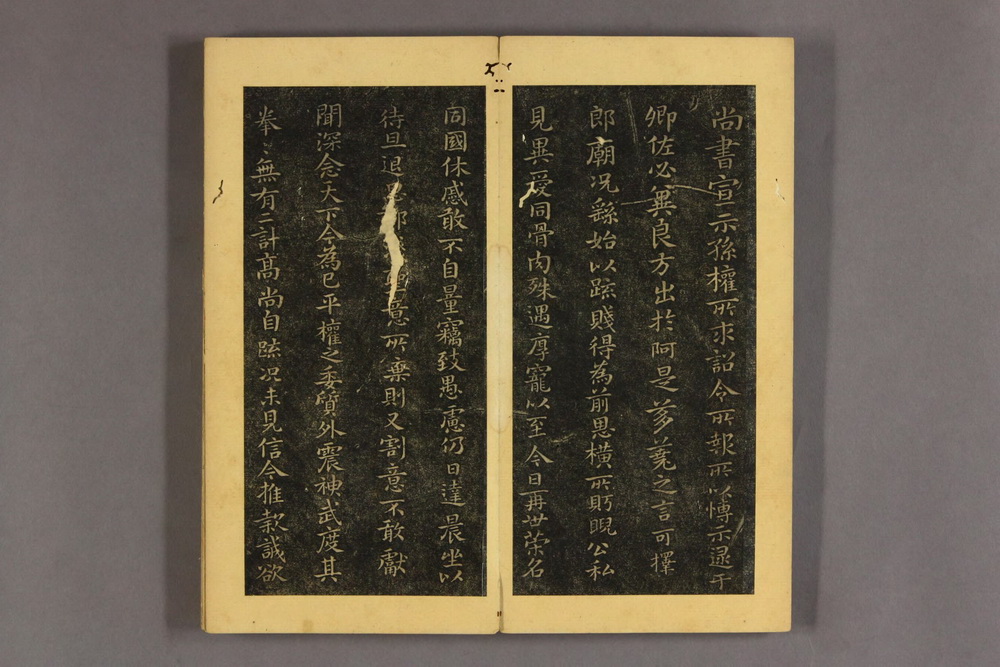 尚書宣示孫權所求詔令所報所以博示逮于
卿佐必冀良方出於阿是芻蕘之言可擇
郎廟況繇始以疏賤得為前恩橫所眄睨公私
見異愛同骨肉殊遇厚寵以至今日再世榮名
同國休慼敢不自量竊致愚慮仍日達晨坐以
待旦退思鄙 聖意所棄則又割意不敢獻
聞深念天下今為已平權之委質外震神武度其
拳〻無有二計高尚自疏況未見信今推款誠欲